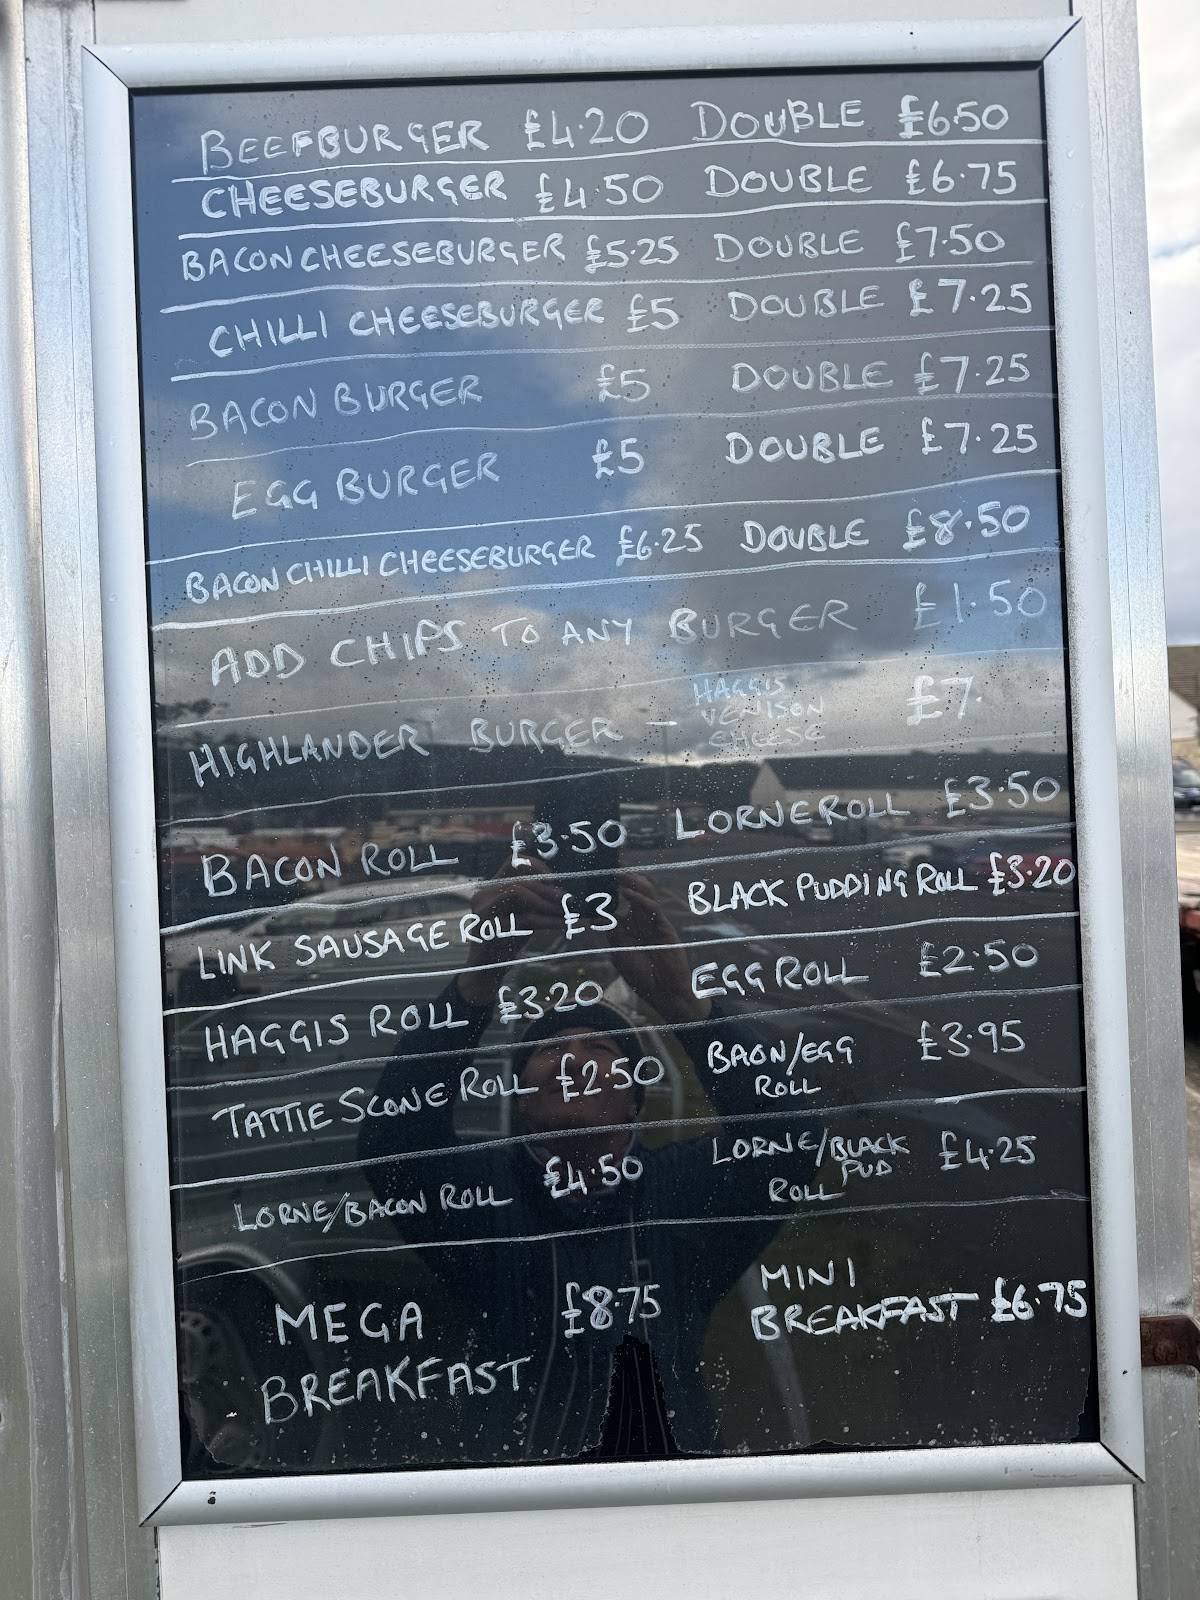 BEEFBURGER £4.20 DOUBLE £6.50
CHEESEBURGER £4.50 DOUBLE £6.75
BACON CHEESEBURGER £5.25 DOUBLE £7.50
CHILLI CHEESEBURGER £5 DOUBLE £7.25
BACON BURGER £5 DOUBLE £7.25
EGG BURGER £5 DOUBLE £7.25
BACON CHILLI CHEESEBURGER £6.25 DOUBLE £8.50
ADD CHIPS TO ANY BURGER £1.50
HIGHLANDER BURGER - HAGGIS £7.
VENISON
CHEESE
BACON ROLL £3.50 LORNE ROLL £3.50
LINK SAUSAGE ROLL £3 BLACK PUDDING ROLL £3.20
HAGGIS ROLL £3.20 EGG ROLL £2.50
TATTIE SCONE ROLL £2.50 BAON/EGG £3.95
ROLL
LORNE/BACON ROLL £4.50 LORNE/BLACK £4.25
PUD
ROLL
MEGA £8.75 MINI
BREAKFAST BREAKFAST £6.75